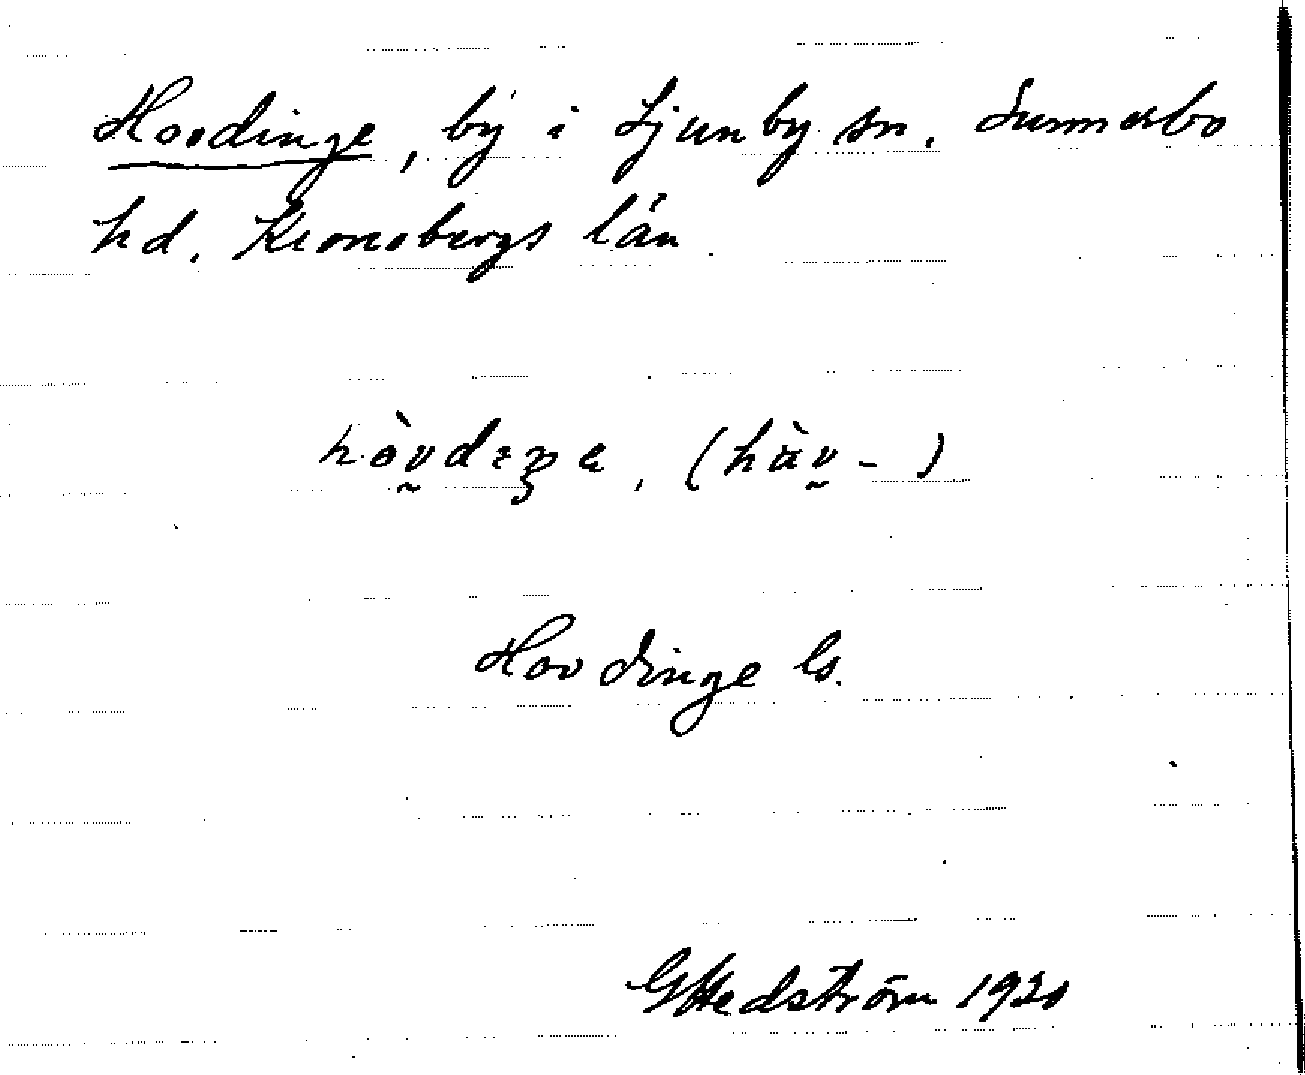 Hovdinge, by i Ljunby sn. Sunnerbo
hd. Kronobergs län
hòvdɛŋɛ, (hàv- )
Hovdinge ls.
GHedström 1920